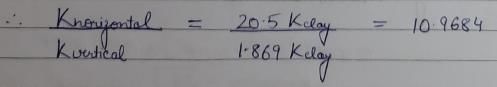 ∴ Khorizontal / Kvertical = 20.5 Kclay / 1.869 Kclay = 10.9684